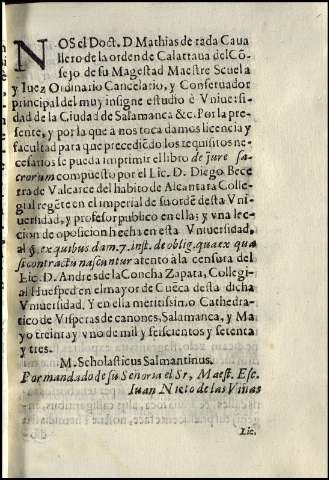 NOS el Doct. D Mathias de rada Caua
llero de la orden de Calatraua del Cõ
sejo de su Magestad Maestre Scuela
y Iuez Ordinario Cancelario, y Conseruador
principal del muy insigne estudio è Vniuersi-
dad de la Ciudad de Salamanca &c. Por la pre-
sente, y por la que à nos toca damos licencia y
facultad para que precediẽdo los requisitos ne-
cessarios se pueda imprimir el libro de jure sa-
crorum compuesto por el Lic. D. Diego Bece
rra de Valcarce del habito de Alcantara Colle-
gial regẽte en el imperial de su ordẽ desta Vni-
uersidad, y profesor publico en ella: y vna lec-
cion de oposicion hecha en esta Vniuersidad,
al §. ex quibus dam. 7. inst. de oblig. quæ ex qua
si contractu nascuntur atento à la censura del
Lic. D. Andres de la Concha Zapata, Collegi-
al Huesped en el mayor de Cuẽca desta dicha
Vniuersidad. Y en ella meritissimo Cathedra-
tico de Visperas de canones, Salamanca, y Ma
yo treinta y vno de mil y seiscientos y setenta
y tres.
M. Scholasticus Salmantinus.
Por mandado de su Señoria el Sr, Maest. Esc.
Iuan Nieto de las Viñas
Lic.